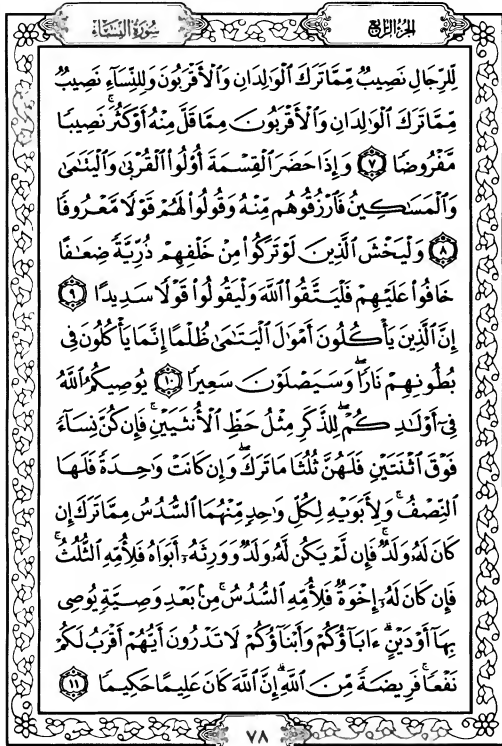 سُورَةُ النِّسَاءِ
الجُزْءُ الرَّابِعُ
لِّلرِّجَالِ نَصِيبٌ مِّمَّا تَرَكَ ٱلْوَٰلِدَانِ وَٱلْأَقْرَبُونَ وَلِلنِّسَآءِ نَصِيبٌ
مِّمَّا تَرَكَ ٱلْوَٰلِدَانِ وَٱلْأَقْرَبُونَ مِمَّا قَلَّ مِنْهُ أَوْ كَثُرَۚ نَصِيبًا
مَّفْرُوضًا ٧ وَإِذَا حَضَرَ ٱلْقِسْمَةَ أُوْلُواْ ٱلْقُرْبَىٰ وَٱلْيَتَٰمَىٰ
وَٱلْمَسَٰكِينُ فَٱرْزُقُوهُم مِّنْهُ وَقُولُواْ لَهُمْ قَوْلًا مَّعْرُوفًا
٨ وَلْيَخْشَ ٱلَّذِينَ لَوْ تَرَكُواْ مِنْ خَلْفِهِمْ ذُرِّيَّةً ضِعَٰفًا
خَافُواْ عَلَيْهِمْ فَلْيَتَّقُواْ ٱللَّهَ وَلْيَقُولُواْ قَوْلًا سَدِيدًا ٩
إِنَّ ٱلَّذِينَ يَأْكُلُونَ أَمْوَٰلَ ٱلْيَتَٰمَىٰ ظُلْمًا إِنَّمَا يَأْكُلُونَ فِى
بُطُونِهِمْ نَارًاۖ وَسَيَصْلَوْنَ سَعِيرًا ١٠ يُوصِيكُمُ ٱللَّهُ
فِىٓ أَوْلَٰدِكُمْۖ لِلذَّكَرِ مِثْلُ حَظِّ ٱلْأُنثَيَيْنِۚ فَإِن كُنَّ نِسَآءً
فَوْقَ ٱثْنَتَيْنِ فَلَهُنَّ ثُلُثَا مَا تَرَكَۖ وَإِن كَانَتْ وَٰحِدَةً فَلَهَا
ٱلنِّصْفُۚ وَلِأَبَوَيْهِ لِكُلِّ وَٰحِدٍ مِّنْهُمَا ٱلسُّدُسُ مِمَّا تَرَكَ إِن
كَانَ لَهُۥ وَلَدٌۚ فَإِن لَّمْ يَكُن لَّهُۥ وَلَدٌ وَوَرِثَهُۥٓ أَبَوَاهُ فَلِأُمِّهِ ٱلثُّلُثُۚ
فَإِن كَانَ لَهُۥٓ إِخْوَةٌ فَلِأُمِّهِ ٱلسُّدُسُۚ مِنۢ بَعْدِ وَصِيَّةٍ يُوصِى
بِهَآ أَوْ دَيْنٍۗ ءَابَآؤُكُمْ وَأَبْنَآؤُكُمْ لَا تَدْرُونَ أَيُّهُمْ أَقْرَبُ لَكُمْ
نَفْعًاۚ فَرِيضَةً مِّنَ ٱللَّهِۗ إِنَّ ٱللَّهَ كَانَ عَلِيمًا حَكِيمًا ١١
٧٨